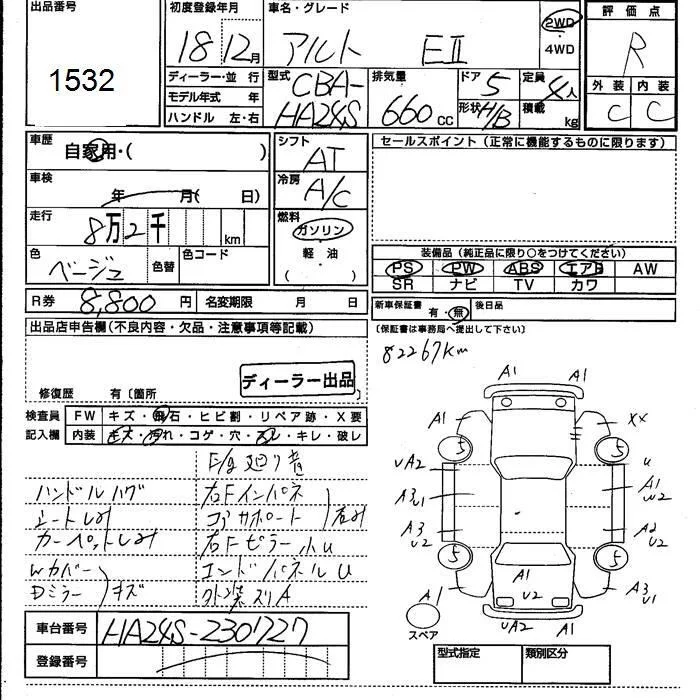 出品番号
1532
初度登録年月
18 12月
車名・グレード
アルト EⅡ
2WD
・
4WD
評価点
R
外装 内装
C C
ディーラー・並 行
モデル年式 年
ハンドル 左・右
型式
CBA-
HA24S
排気量
660 cc
ドア 5
形状 H/B
定員 4人
積載 kg
車歴
自家用・( )
車検
年 月( 日)
走行
8万2千 km
色
ベージュ
色替
色コード
シフト
AT
冷房
A/C
燃料
ガソリン
軽・油
( )
セールスポイント(正常に機能するものに限ります)
装備品(純正品に限り○をつけてください)
PS PW ABS エアB AW
SR ナビ TV カワ
R券 8,800 円 名変期限 月 日
新車保証書 有・無 後日品
(保証書は事務局へ提出して下さい)
出品店申告欄(不良内容・欠品・注意事項等記載)
82267km
ディーラー出品
修復歴 有〔箇所
検査員
記入欄
FW キズ・飛石・ヒビ割・リペア跡・X要
内装 キズ・汚れ・コゲ・穴・スレ・キレ・破レ
F/g廻り音
ハンドルハゲ
シートしみ
カーペットしみ
Wカバー
Dミラー
キズ
右Fインパネ
コアサポート
右Fピラー小u
エンドパネルu
外装スリA
車台番号 HA24S-2301727
登録番号
A1 A1
A1 XX
5 5
uA2 u
A3 u1
A1 u2
A3 u2
A2 u2
5 5
A1
u2
A1
A3 u1
uA2 A1
スペア
型式指定 類別区分